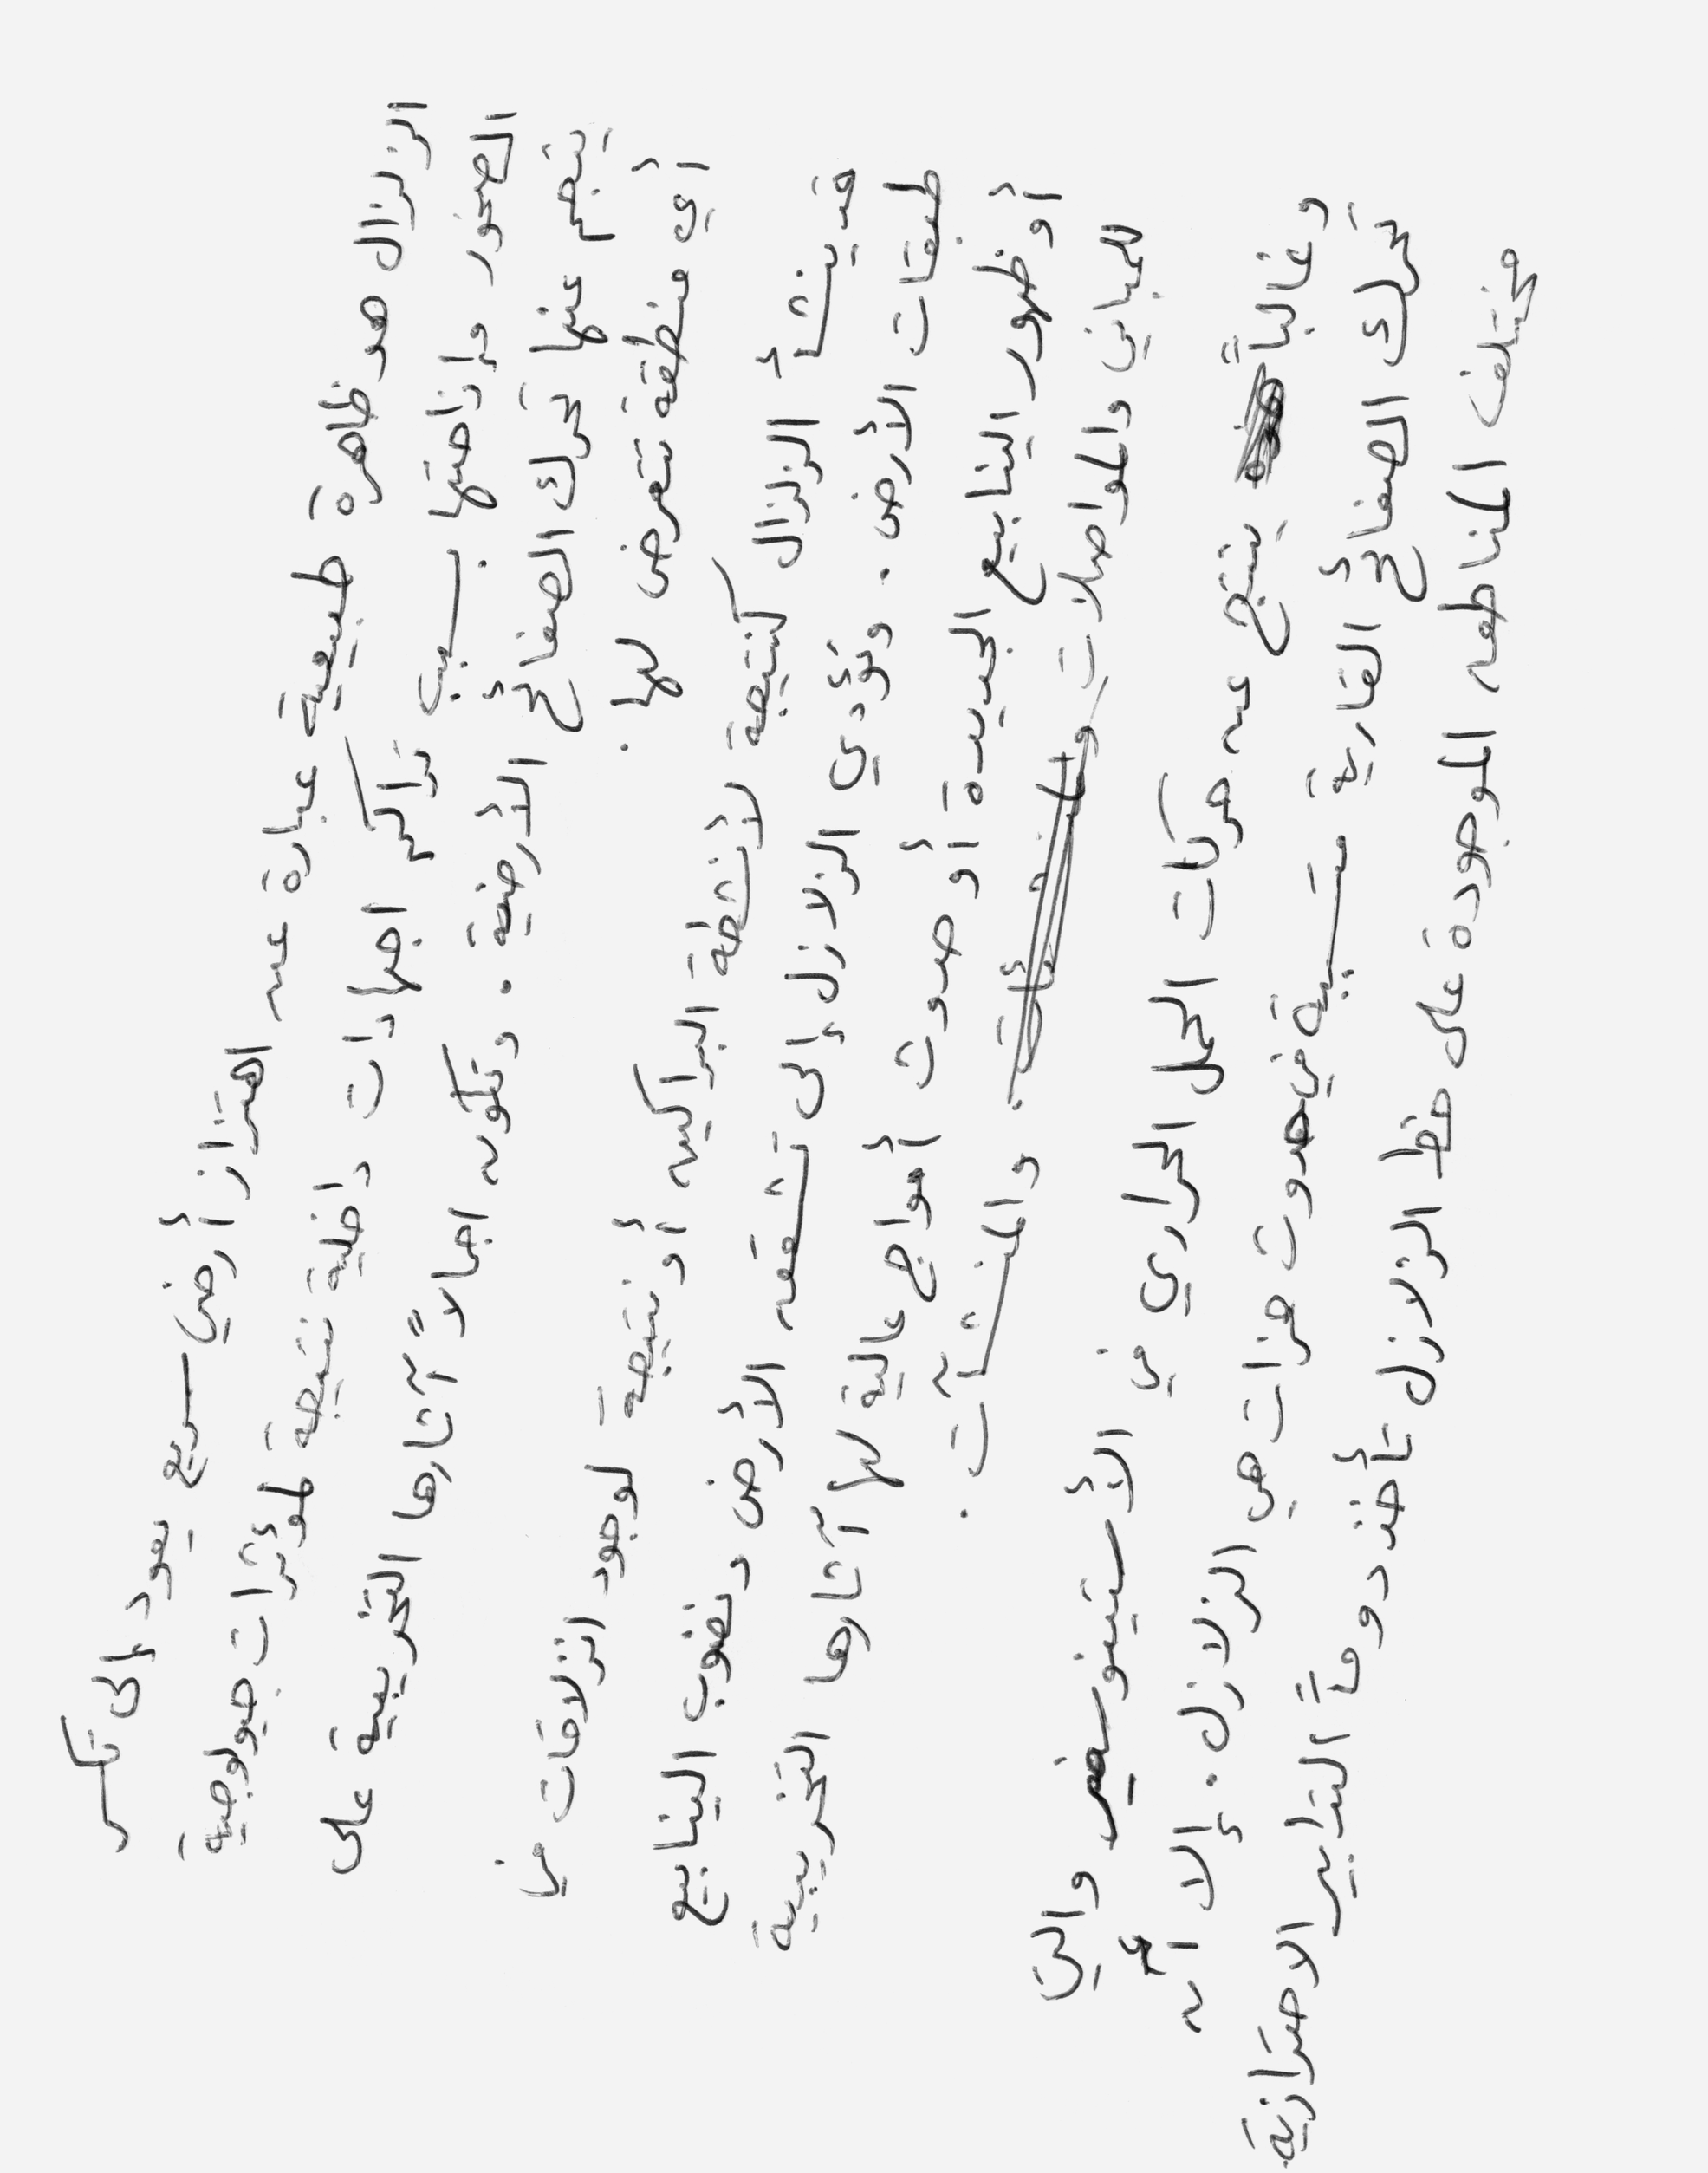 الزلزال هو ظاهرة طبيعية عبارة عن اهتزاز أرضي سريع يعود إلى تكسر
الصخور وإزاحتها بسبب تراكم اجهادات داخلية نتيجة لمؤثرات جيولوجية
ينجم عنها تحرك الصفائح الأرضية. وتكون اجمالاً آثارها التخريبية على
أي منطقة تتعرض لها.
قد ينشأ الزلزال كنتيجة لأنشطة البراكين أو نتيجة لوجود انزلاقات في
طبقات الأرض. وتؤدي الزلازل إلى تشقق الأرض ونضوب الينابيع
أو ظهور الينابيع الجديدة أو حدوث أمواج عالية لها آثارها التخريبية
للمباني والمواصلات والمنشآت.
وغالباً ينتج عن حركات الحمل الحراري في الأستينوسفير والتي
تحرك الصفائح القارية متسببة في حدوث هزات هي الزلازل. إلا أن
مختلف المناطق الموجودة على خط الزلازل تأخذ دوماً التدابير الاحترازية